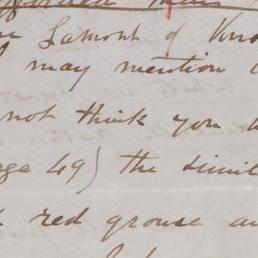 Lamont of Kno
I may mention
not think you
age 49) the simil
red grouse an